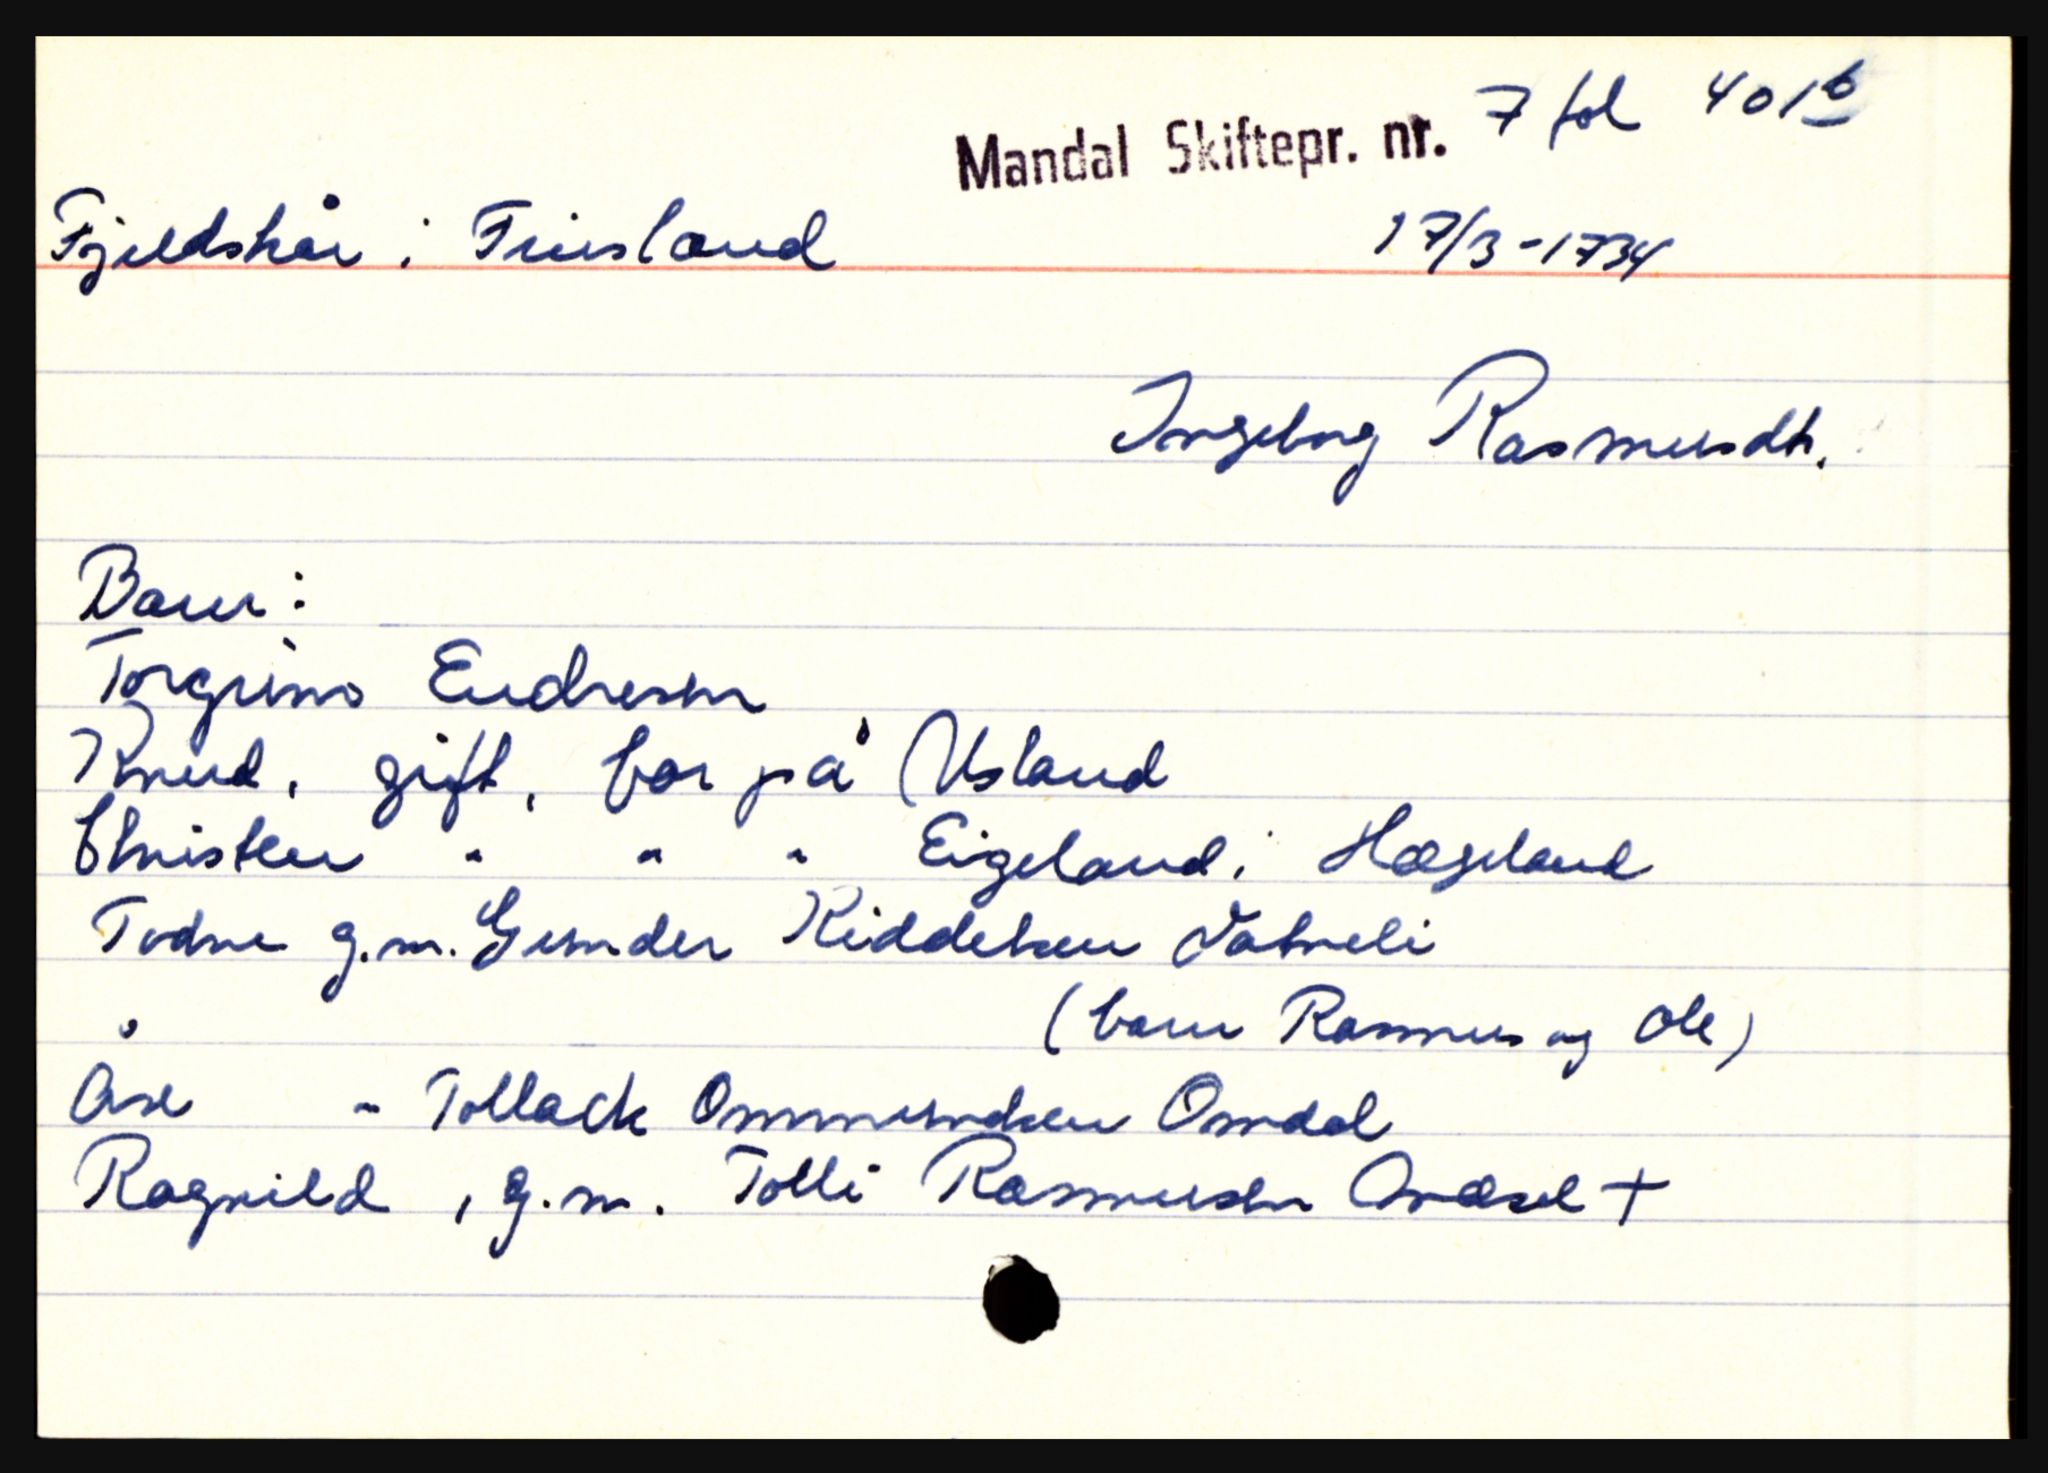 Mandal Skiftepr. nr. 7 fol 401b
Fjeldskår i Finsland 17/3-1734
Ingeborg Rasmusdtr.
Barn:
Torgrims Endresen
Knud, gift, bor på Usland
Christen " " " Eigeland i Hægeland
Todne g.m. Gunder Kiddelsen Vatneli
(barn Rasmus og Ole)
Åse " Tollack Ommundsen Omdal
Ragnild, g.m. Tolli Rasmusen +